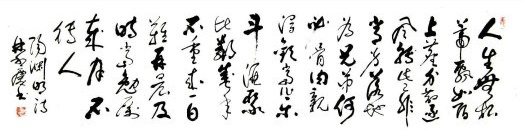 人生無根
蒂飄如陌
上塵分散逐
風轉此已非
常身落地
為兄弟何
必骨肉親
得歡當作樂
斗酒聚
比鄰盛年
不重來一日
難再晨及
時當勉勵
歲月不
待人
陶淵明詩